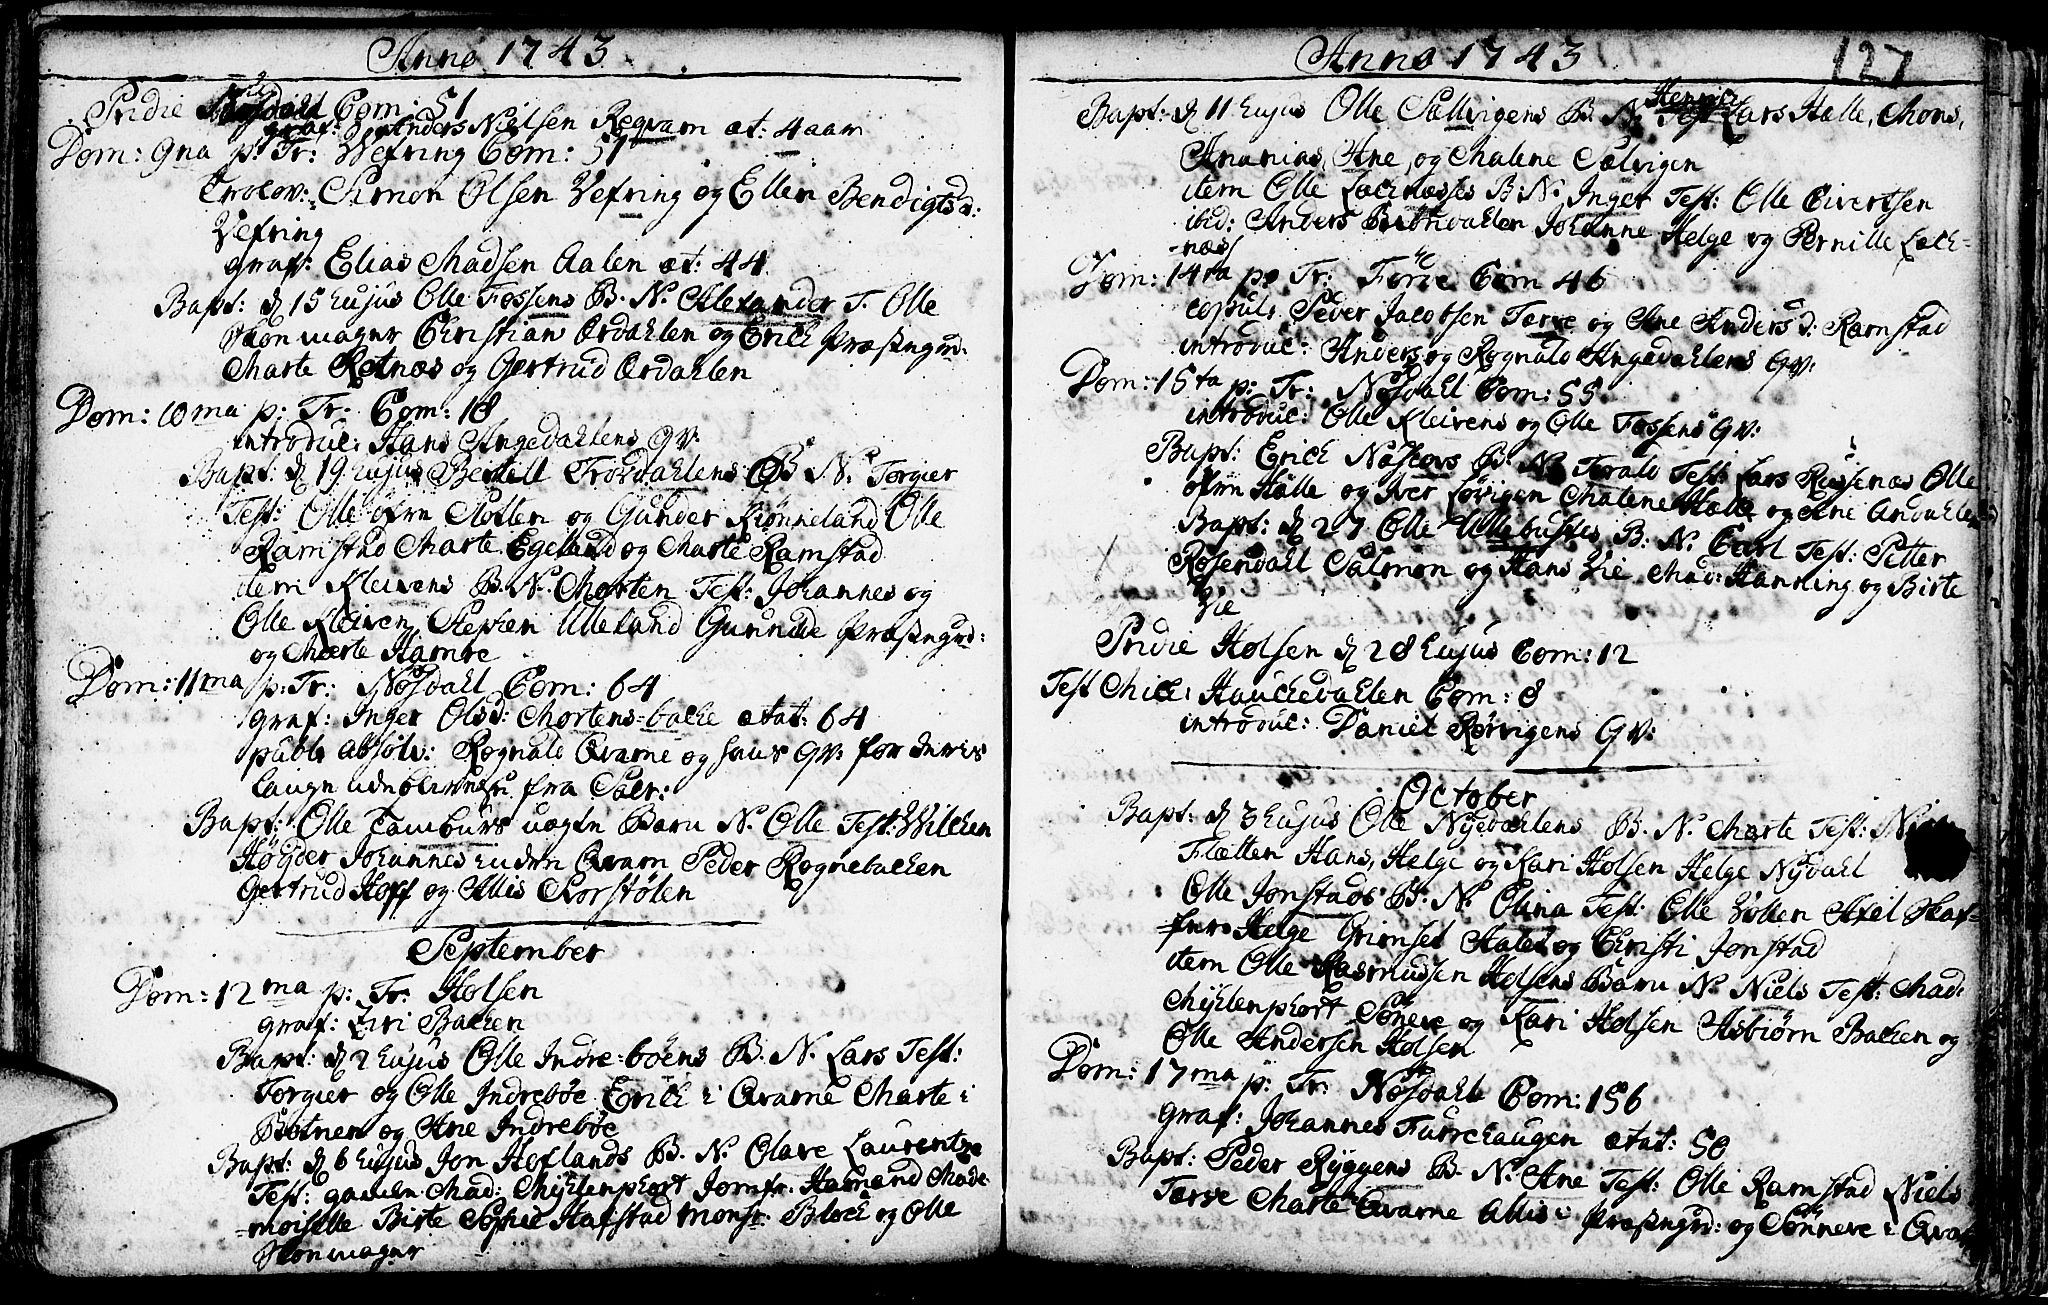 Anno 1743
Pridie Nøsdahl Com: 51
graf: Anders Nielsen Reqvam æt: 4 aar
Dom: 9na p: Tr: Vefring Com: 57
Trolov: Simon Olsen Vefring og Ellen Bendigtsd:
Vefring
graf: Elias Madsen Aalen æt: 44
Bapt: d 15 hujus Olle Fossens B. N. Alexander T. Olle
Skonmager Christian Ordahlen og Erich Præstegrd:
Marte Rotnæs og Gertrud Ordahlen
Dom: 10ma p: Tr: Com: 18
introduc: Hans Angedahlens qv:
Bapt: d 19 hujus Bertell Frovdahlens B. N. Torgier
Test: Olle ofrn Slotten og Gunder Kiønneland Olle
Ramstad Marte Egeland og Marte Ramstad
item Kleivens B. N. Morten Test: Johannes og
Olle Kleiven Stephen Ulleland Gunnilde Præstegrd:
og Marte Hamre
Dom: 11ma p: Tr: Nøsdahl Com: 64
graf: Inger Olsd: Mortens-bache ætat: 64
publ: absolv: Rognald Qvarne og hans qv: for deris
laugn udeblivelse fra Sacr:
Bapt: Olle Tamburs uægte Barn N. Olle Test: Wilchen
Høyder Johannes huden Qvarn Peder Rognebachen
Gertrud Hoff og Allis Korstølen
September
Dom: 12ma p: Tr: Holsen
graf: Liri Bachen
Bapt: d 2 hujus Olle Indre-boens B. N. Lars Test:
Torgier og Olle Indrebøe Erich i Qvarne Marte i
Botnen og Ane Indrebøe
Bapt: d 6 hujus Jon Hoflands B. N. Olave Laurentze
Test: Mad: Myhlenphort Jomfr. Hamand Made-
-moiselle Birte Sophie Hafstad Monsr. Bloch og Olle
Skonmager
Anno 1743
127
Bapt: d 11 hujus Olle Sællvigens B. N. Henric Test Lars Halle, Mons,
Ananias, Ane, og Malene Sælvigen
item Olle Lachnæsses B: N. Inger Test: Olle Eivertsen
ibid: Anders Bretdahlen Johanne Helge og Pernille Lach-
-næs
Dom: 14ta p: Tr: Førde Com 46
copul: Peder Jacobsen Tærve og Ane Andersd: Ramstad
introduc: Anders og Rognald Angedahlens qv:
Dom: 15ta p: Tr: Nøsdahl Com: 55
introduc: Olle Kleivens og Olle Fossens qv:
Bapt: Erich Nøscovs B. N. Torald Test: Lars Russenæs Olle
ofrn Halle og Iver Løvigen Malene Halle og Ane Andahlen
Bapt: d 27 Olle Ullebustes B. N. Carl Test: Petter
Rosendahl Salmon og Hans Vie Mad: Hamling og Birte
Vie
Pridie Holsen d 28 hujus Com: 12
Fest Mich: Hauchedahlen Com: 8
introduc: Daniel Rørvigens qv:
October
Bapt: d 3 hujus Olle Nyedahlens B. N. Marte Test:
Flætten Hans, Helge og Kari Holsen Helge Nydahl
Olle Jonstads B. N. Olina Test. Olle Volten Axel Skaf-
-fer Helge Grimset Hales og Christi Jonstad
item Olle Rasmussen Holsens Barn N. Niels Test: Mad:
Myhlenphort Sønneve og Kari Holsen Asbiørn Bachen og
Olle Andersen Holsen
Dom: 17ma p: Tr: Nøsdahl Com: 156
graf: Johannes Furrehaugen ætat: 58
Bapt: Peder Ryggens B. N. Ane Test: Olle Ramstad Niels
Tærve Marte Qvarne Allis i Præstegrd: og Sønneve i